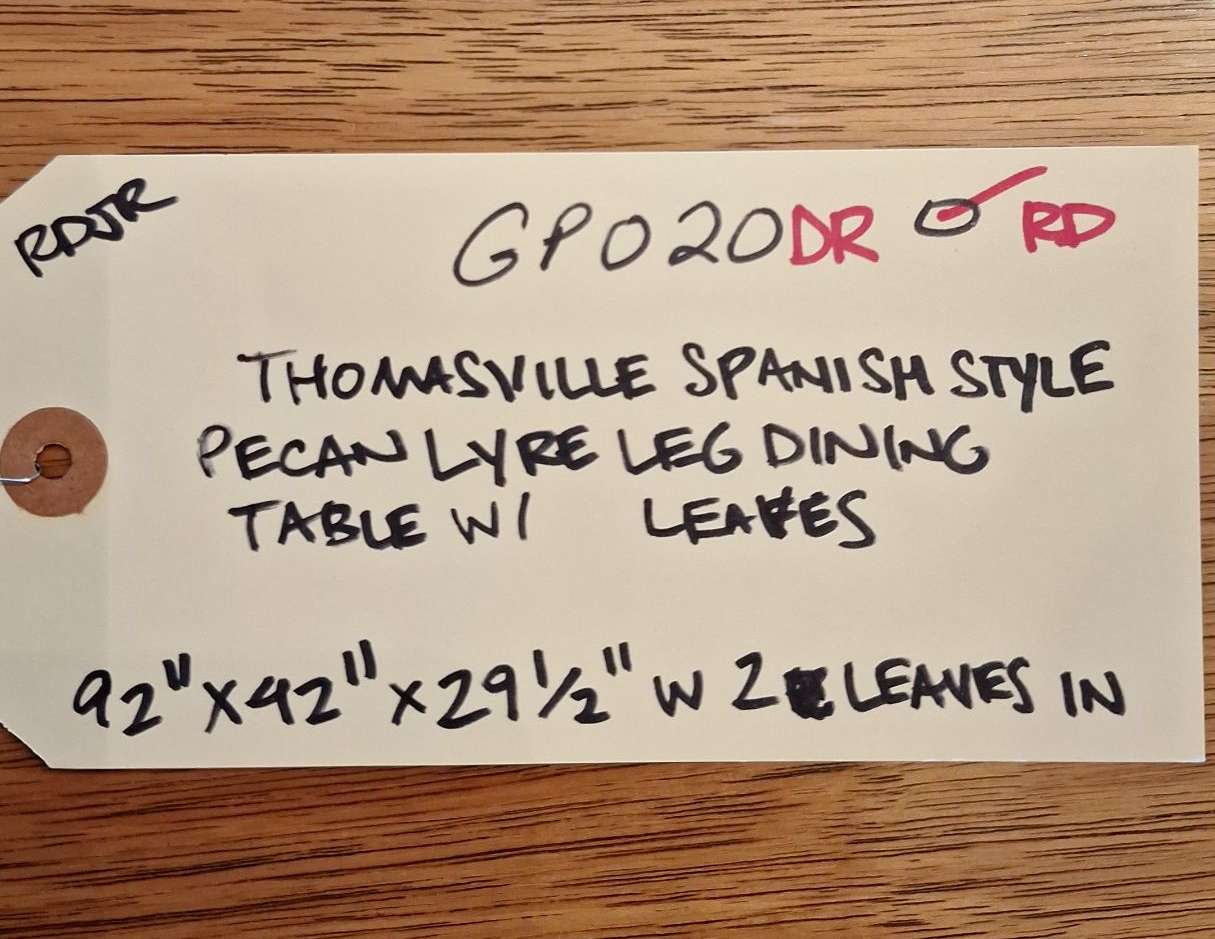 RDJR
GP020DR RD
THOMASVILLE SPANISH STYLE
PECAN LYRE LEG DINING
TABLE W/ LEAVES
92" X 42" X 29 1/2" W 2 LEAVES IN